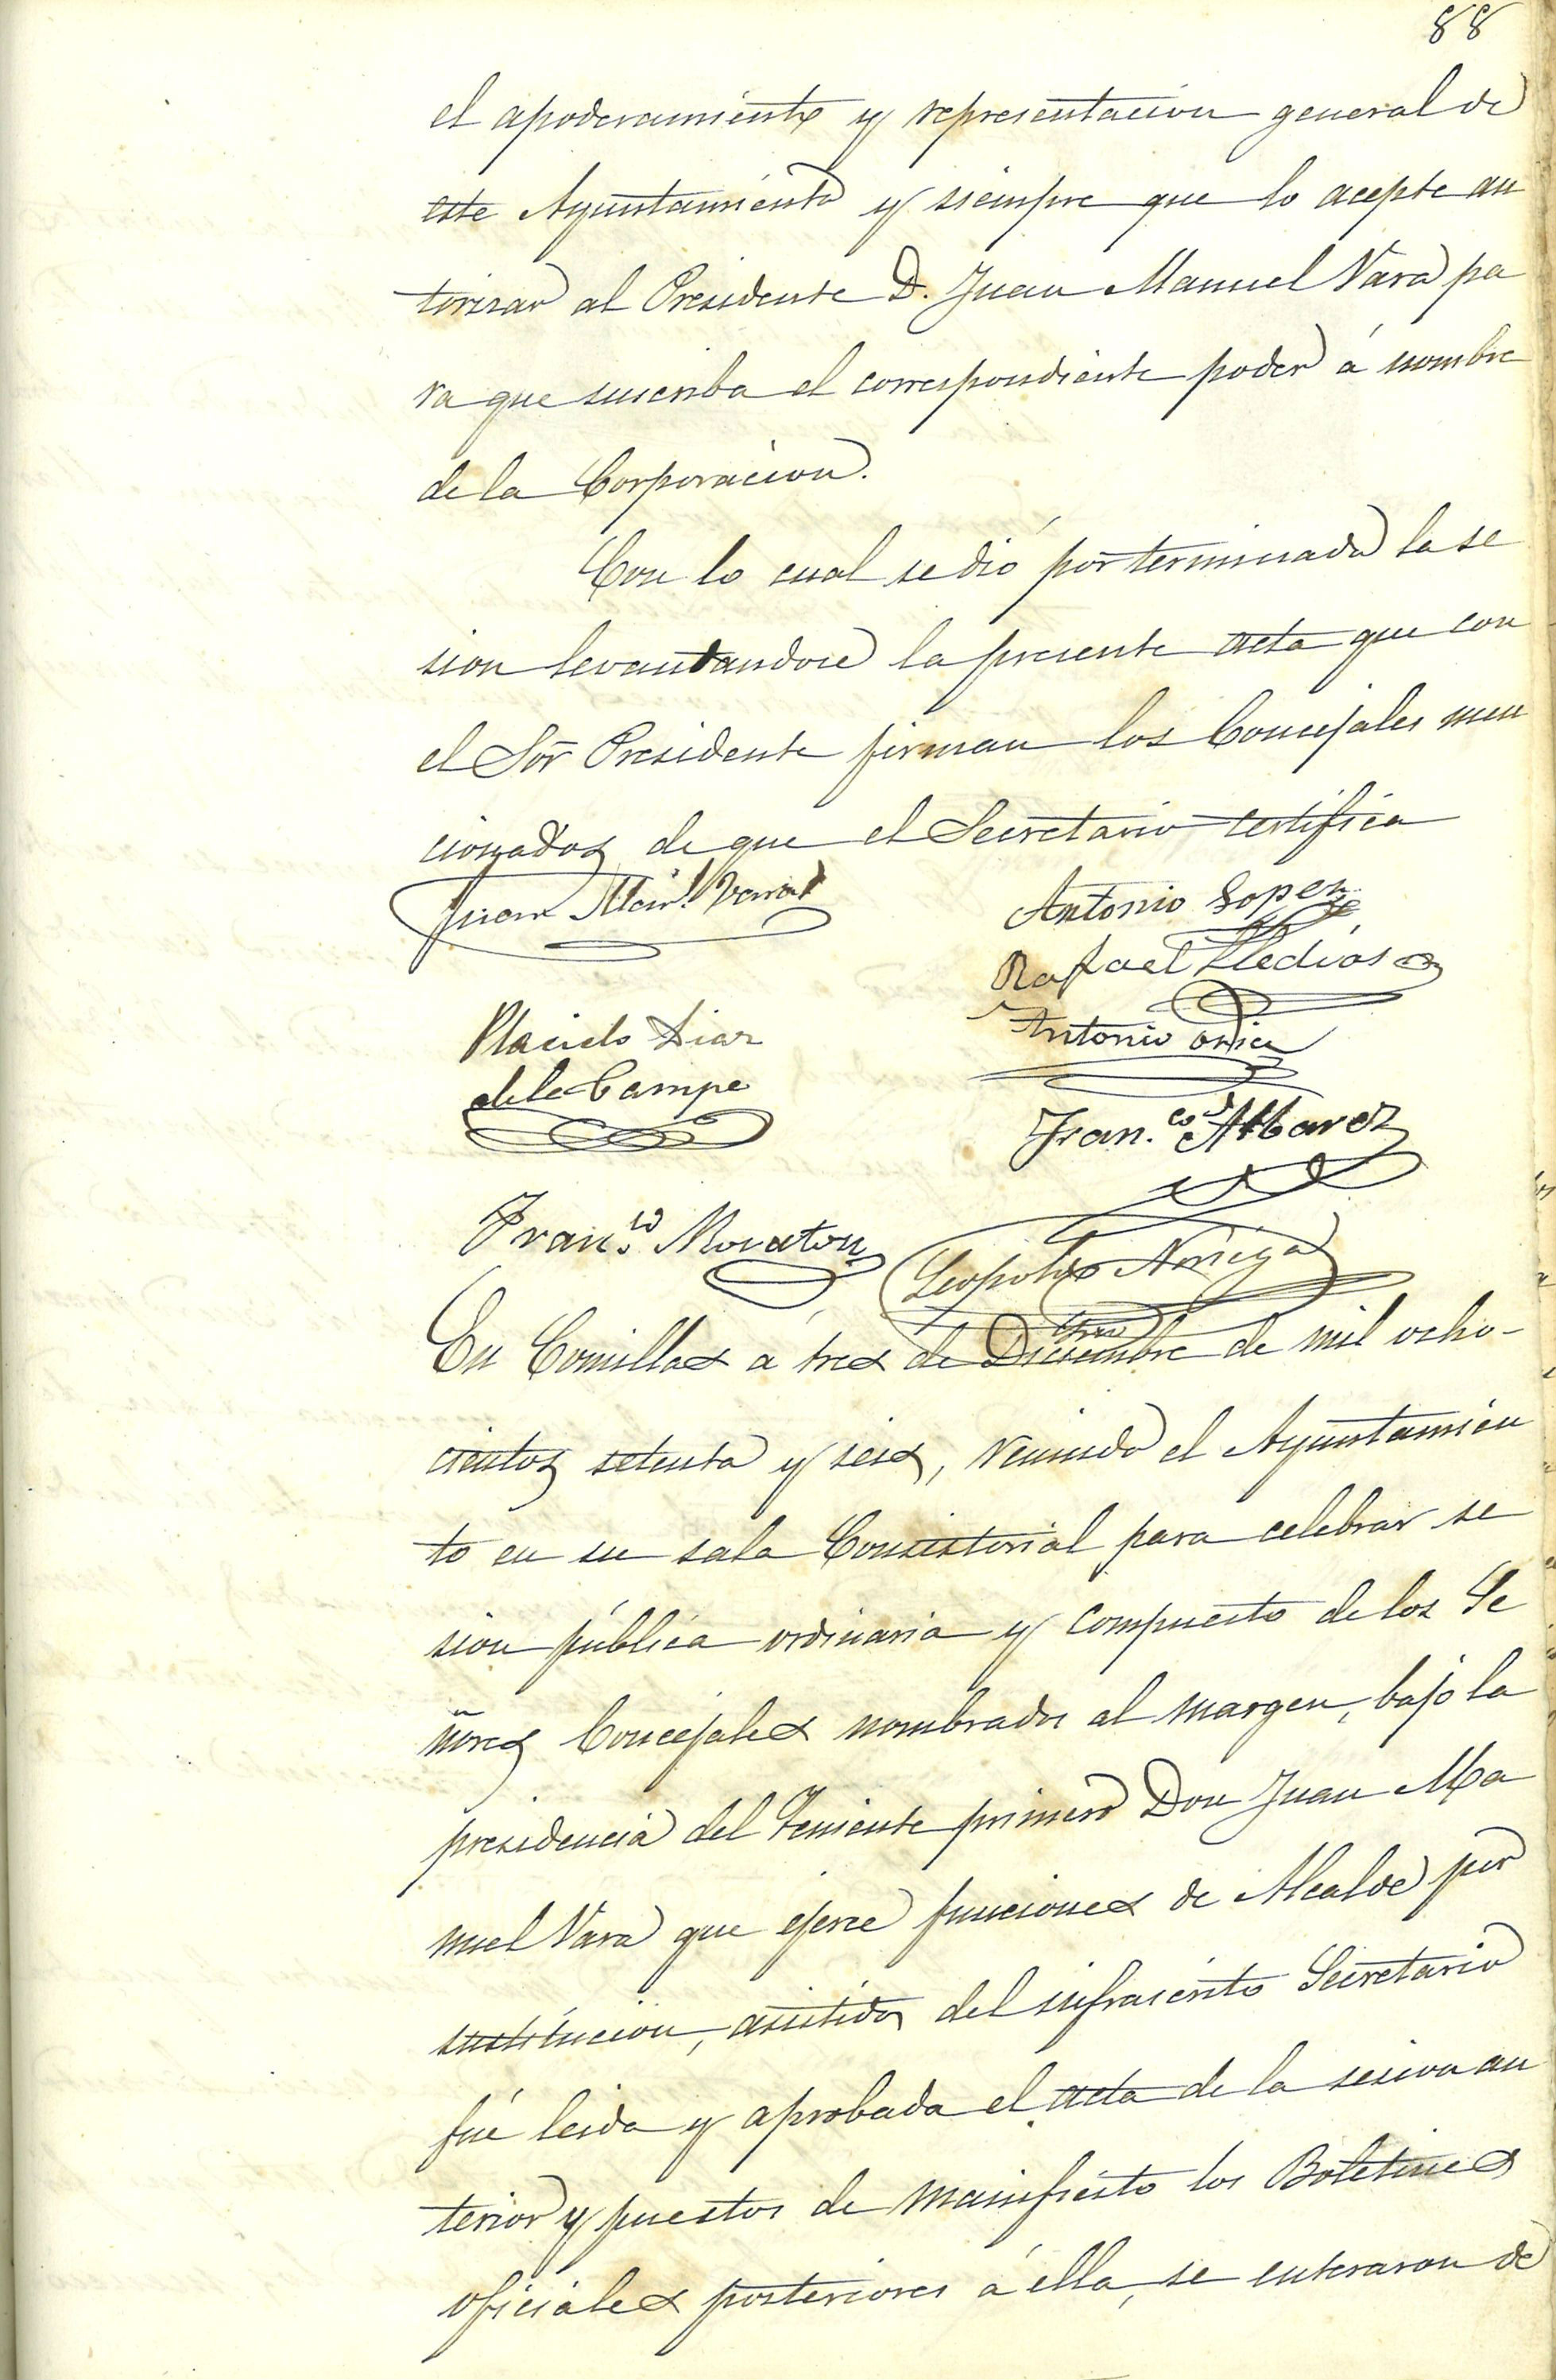 88
el apoderamiento y representacion general de
este Ayuntamiento y siempre que lo acepte au
torizar al Presidente D. Juan Manuel Vara pa
ra que suscriba el correspondiente poder á nombre
de la Corporacion.
Con lo cual se dió por terminada la se
sion levantandose la presente acta que con
el Sor Presidente firman los Concejales men
cionados de que el Secretario certifica
Juan Man.l Vara
Antonio Lopez
Rafael
Antonio
Placido Diaz
de la Campa
Fran.co Albarez
Fran.co Moraton
Leopoldo Noriega
Srio
En Comillas á tres de Diciembre de mil ocho-
cientos setenta y seis, reunido el Ayuntamien
to en su sala Consistorial para celebrar se
sion pública ordinaria y compuesto de los Se
ñores Concejales nombrados al margen, bajo la
presidencia del Teniente primero Don Juan Ma
nuel Vara que ejerce funciones de Alcalde por
sustitucion, asistidos del infrascrito Secretario
fué leida y aprobada el acta de la sesion an
terior y puestos de manifiesto los Boletines
oficiales posteriores á ella, se enteraron de